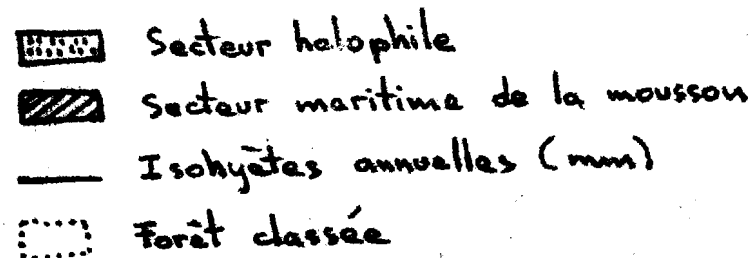 Secteur halophile
Secteur maritime de la mousson
Isohyètes annuelles (mm)
Forêt classée